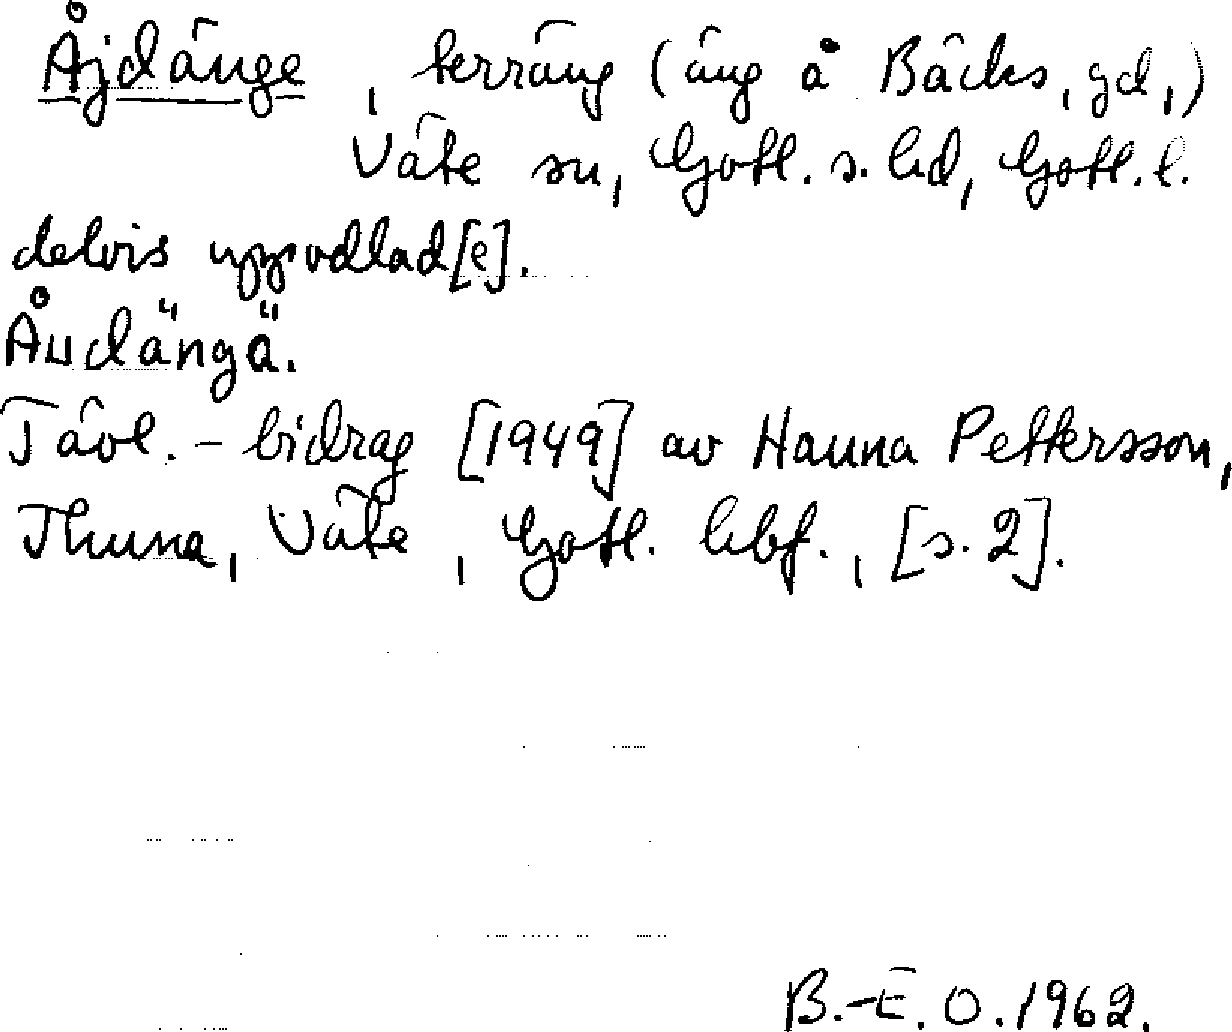 Åjdänge, terräng (äng å Bäcks, gd,)
Väte sn, Gotl. s. hd, Gotl. l.
delvis uppodlad[e].
Åudängä.
Tävl.- bidrag [1949] av Hanna Pettersson,
Thuna, Väte, Gotl. hbf., [s. 2].
B.-E. O. 1962.